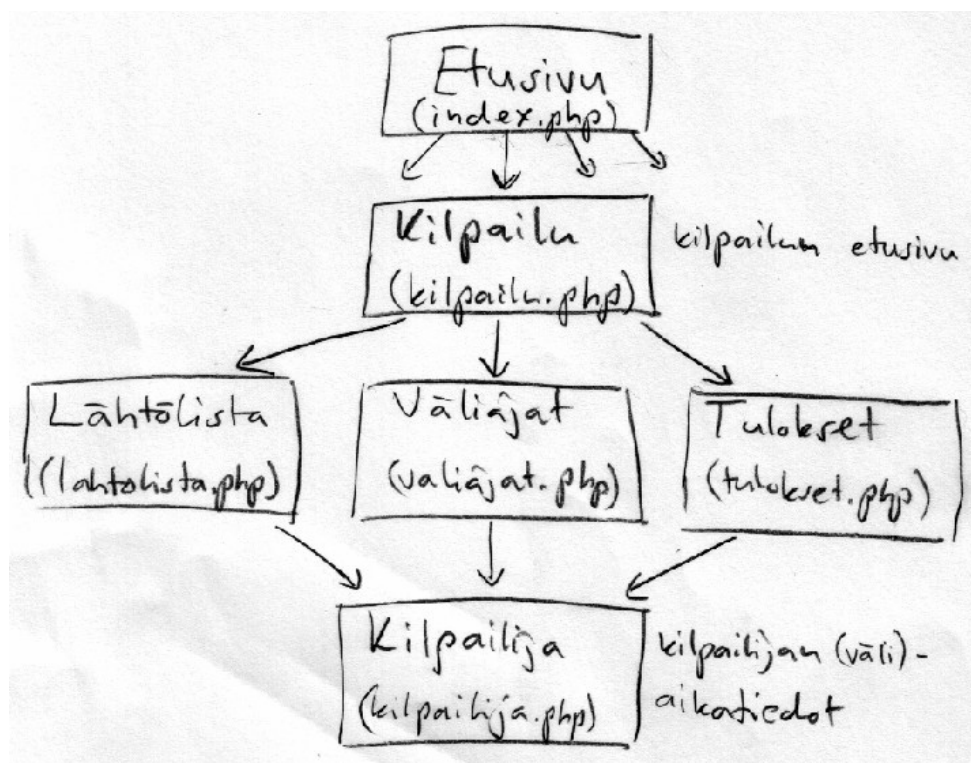 Etusivu
(index.php)
Kilpailu
(kilpailu.php)
kilpailun etusivu
Lähtölista
((lahtolista.php)
Väliajat
(valiajat.php)
Tulokset
(tulokset.php)
Kilpailija
(kilpailija.php)
kilpailijan (väli)-
aikatiedot